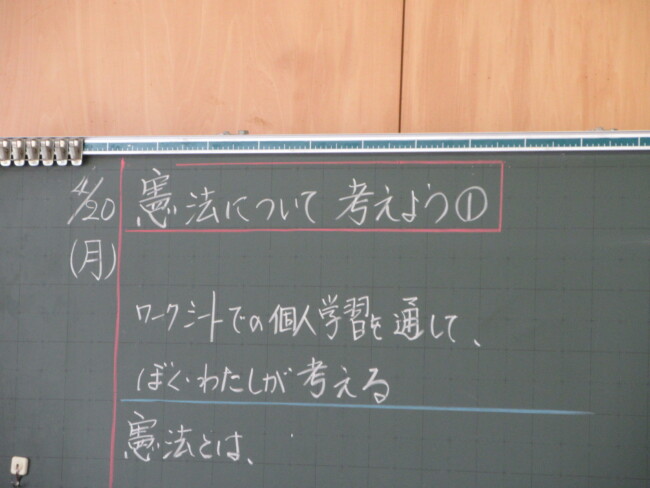 4/20
(月)
憲法について 考えよう①
ワークシートでの個人学習を通して、
ぼく・わたしが考える
憲法とは、